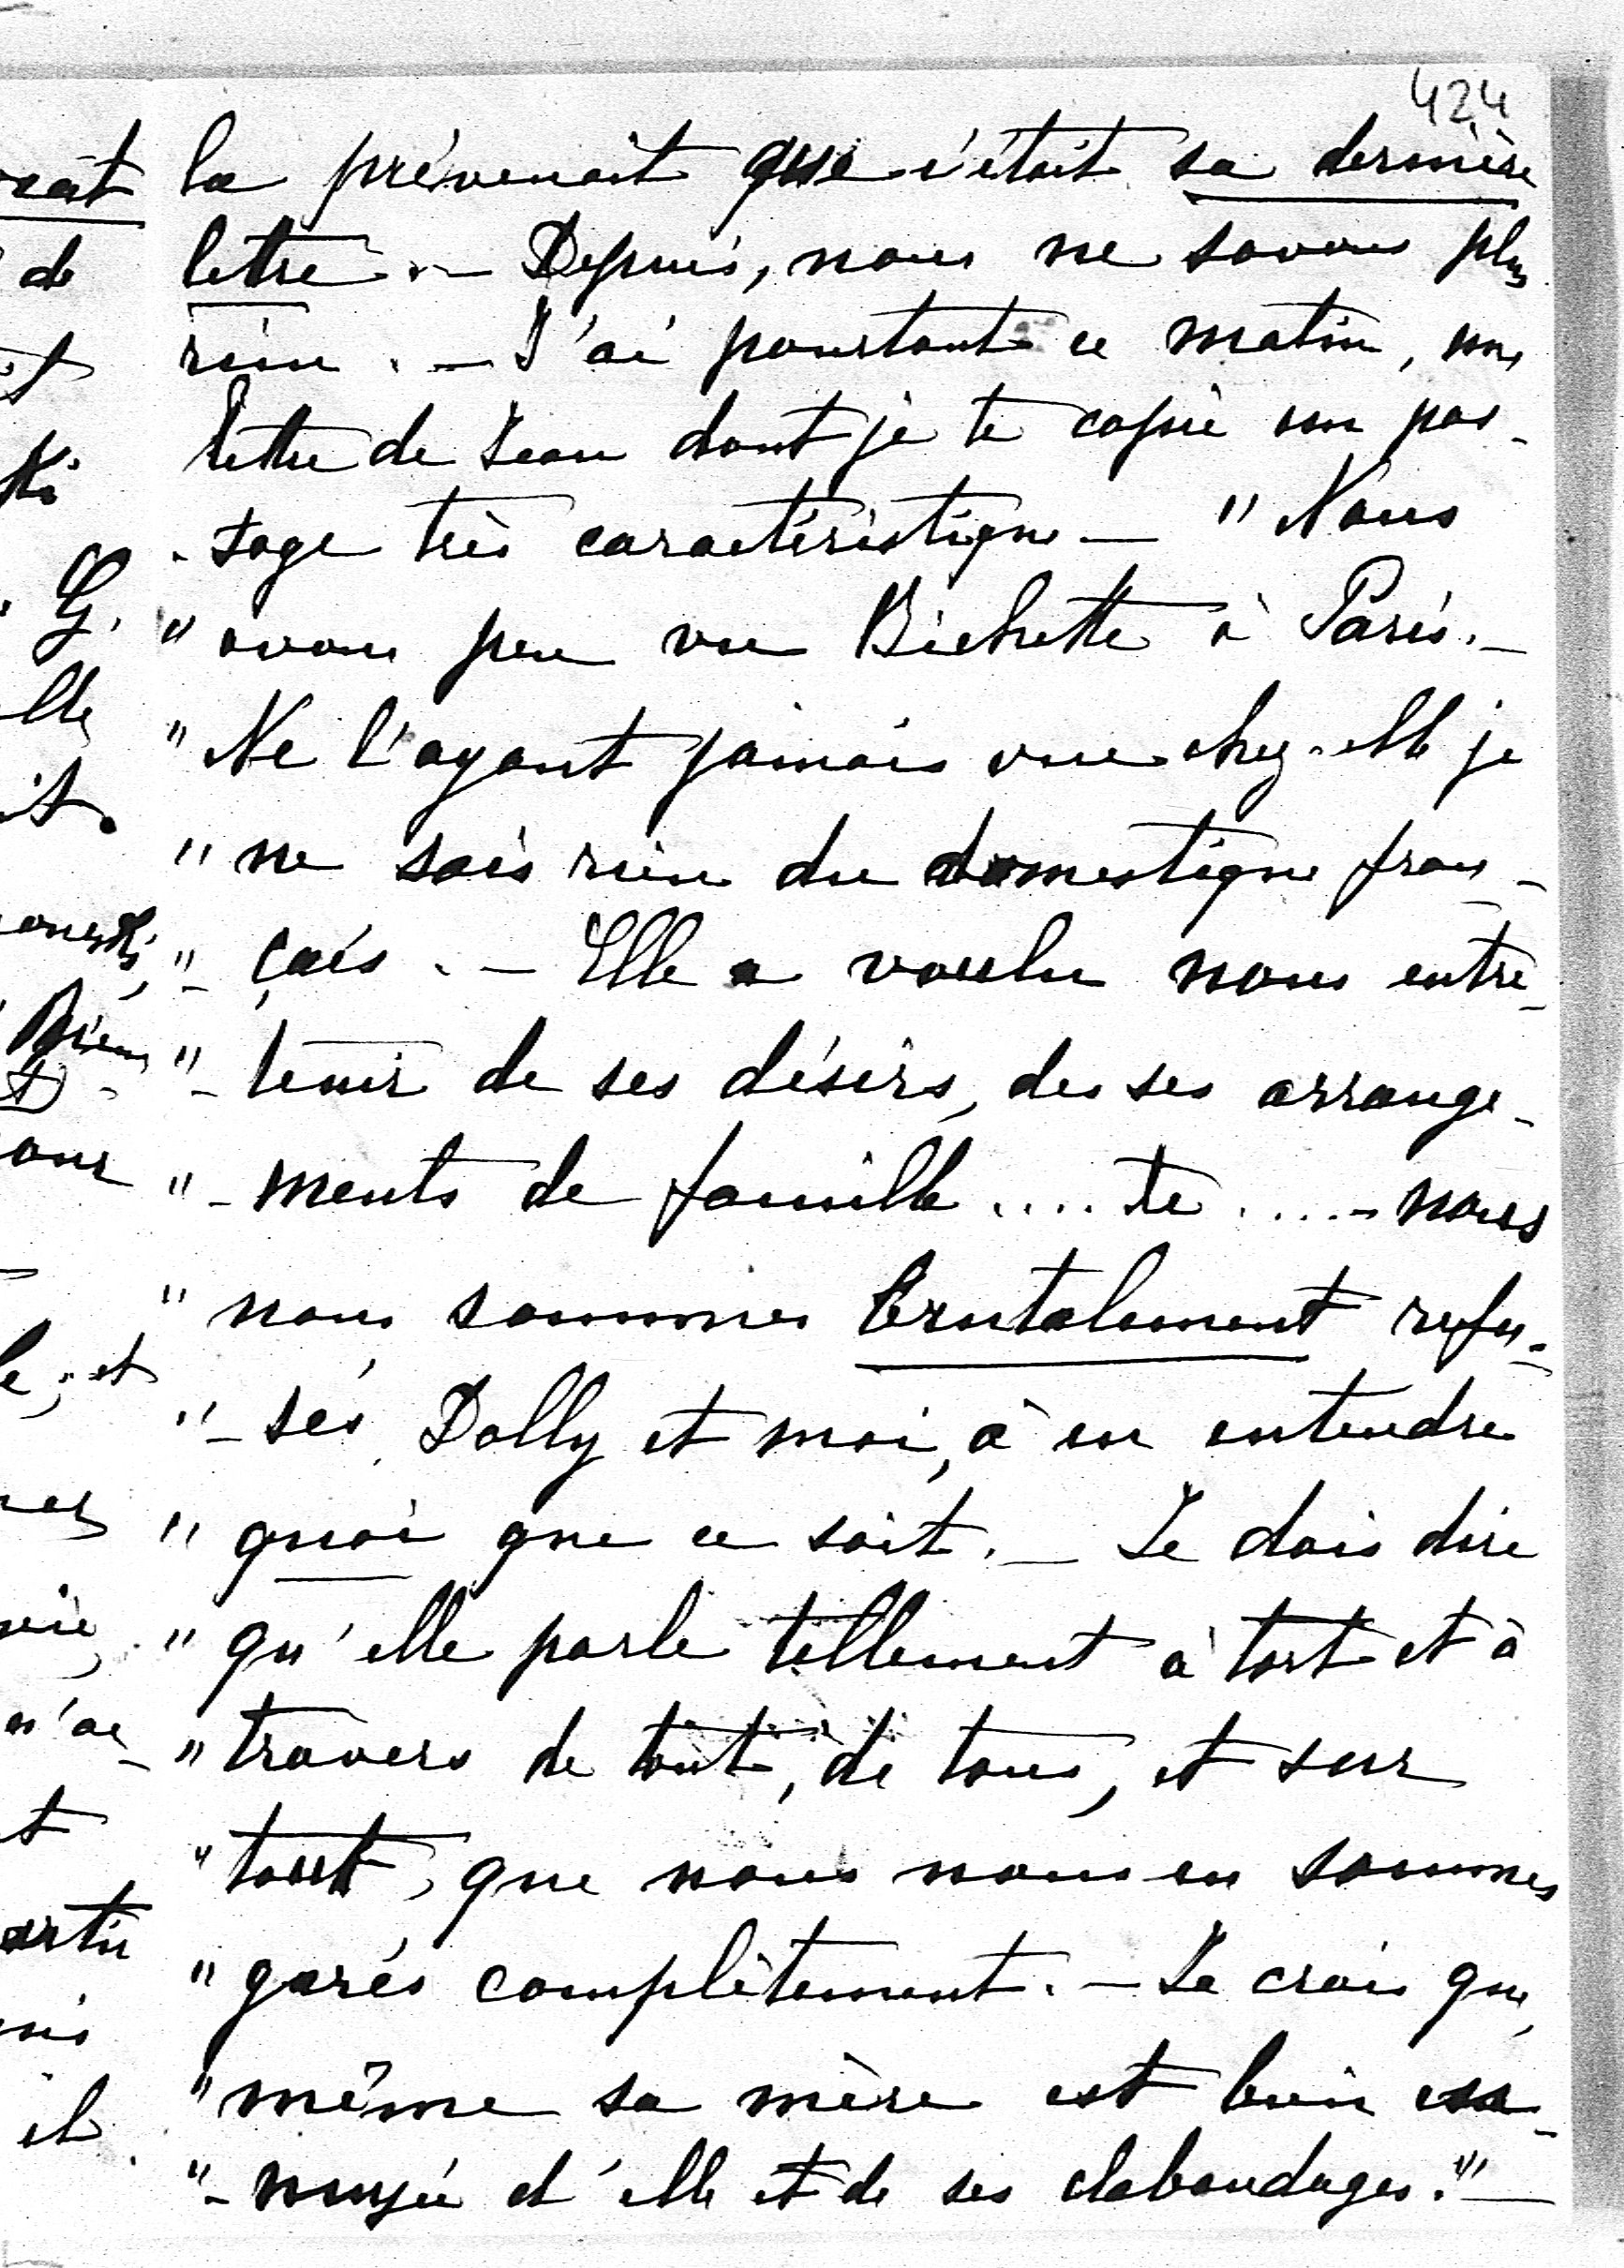 424
la prévenait que c'était sa dernière
lettre. — Depuis, nous ne savons plus
rien. — J'ai pourtant ce matin, une
lettre de Jean dont je te copie un pas-
-sage très caractéristique — " Nous
" avons peu vu Bichette à Paris. —
" Ne l'ayant jamais vue chez elle je
" ne sais rien du domestique fran-
"- çais. — Elle a voulu nous entre-
"- tenir de ses désirs, de ses arrange-
"- ments de famille .... te ..... nous
" nous sommes brutalement refu-
"- sés, Dolly et moi, à en entendre
" quoi que ce soit. — Je dois dire
" qu'elle parle tellement à tort et à
" travers de tout, de tous, et sur
" tout, que nous nous en sommes
" garés complètement. — Je crois que,
" même sa mère est bien en-
"- nuyée d'elle et de ses clabaudages." —